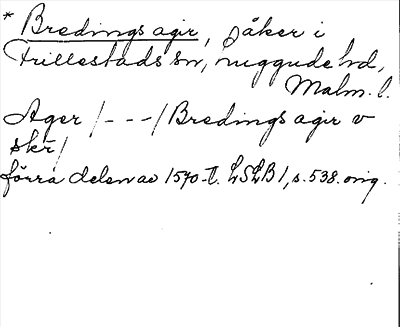 * Bredings agir, åker i
Frillestads sn, Luggude hd,
Malm. l.
Ager /- - -/ Bredings agir v
skr/
förra delen av 1570-t. LSLB 1, s. 538. orig.